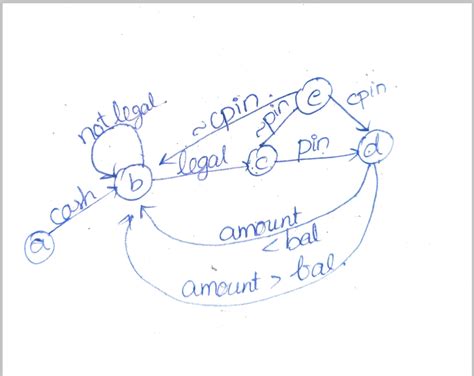 not legal.
~cpin.
e
cpin.
~pin
legal
c
pin
d
b
cash
a
amount
< bal
amount > bal.